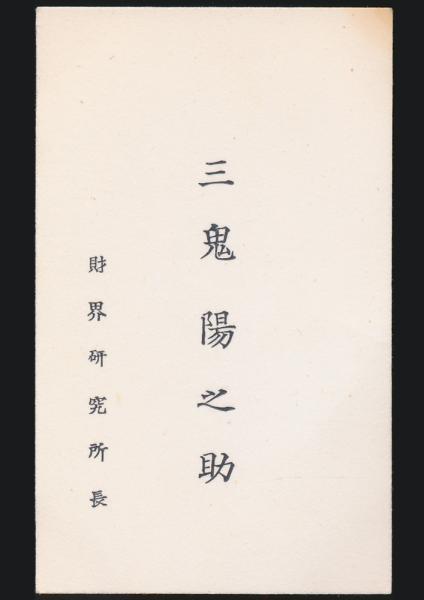 三鬼陽之助
財界研究所長